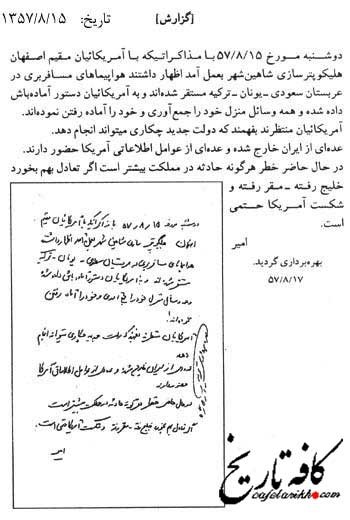 [گزارش] تاریخ: ۱۳۵۷/۸/۱۵
دوشنبه مورخ ۵۷/۸/۱۵ با مذاکراتیکه با آمریکائیان مقیم اصفهان
هلیکوپترسازی شاهین‌شهر بعمل آمد اظهار داشتند هواپیماهای مسافربری در
عربستان سعودی ـ یونان ـ ترکیه مستقر شده‌اند و به آمریکائیان دستور آماده‌باش
داده شده و همه وسائل منزل خود را جمع‌آوری و خود را آماده رفتن نموده‌اند.
آمریکائیان منتظرند بفهمند که دولت جدید چکاری میتواند انجام دهد.
عده‌ای از ایران خارج شده و عده‌ای از عوامل اطلاعاتی آمریکا حضور دارند.
در حال حاضر خطر هرگونه حادثه در مملکت بیشتر است اگر تعادل بهم بخورد
خلیج رفته ـ مقر رفته و
شکست آمریکا حتمی
است.
امیر
بهره‌برداری گردید.
۵۷/۸/۱۷
دوشنبه مورخ ۵۷/۸/۱۵ با مذاکراتیکه با آمریکائیان مقیم
اصفهان هلیکوپتر سازی شاهین شهر بعمل آمد اظهار داشتند
هواپیماهای مسافربری در عربستان سعودی ـ یونان ـ ترکیه
مستقر شده‌اند و به آمریکائیان دستور آماده باش داده شده
و همه وسائل منزل خود را جمع آوری و خود را آماده رفتن
نموده‌اند.
آمریکائیان منتظرند بفهمند که دولت جدید چکاری میتواند انجام
دهد
عده‌ای از ایران خارج شده و عده‌ای از عوامل اطلاعاتی آمریکا
حضور دارند
در حال حاضر خطر هرگونه حادثه در مملکت بیشتر است
اگر تعادل بهم بخورد خلیج رفته ـ مقر رفته و شکست آمریکا حتمی است.
امیر
کافه تاریخ
cafetarikh.com